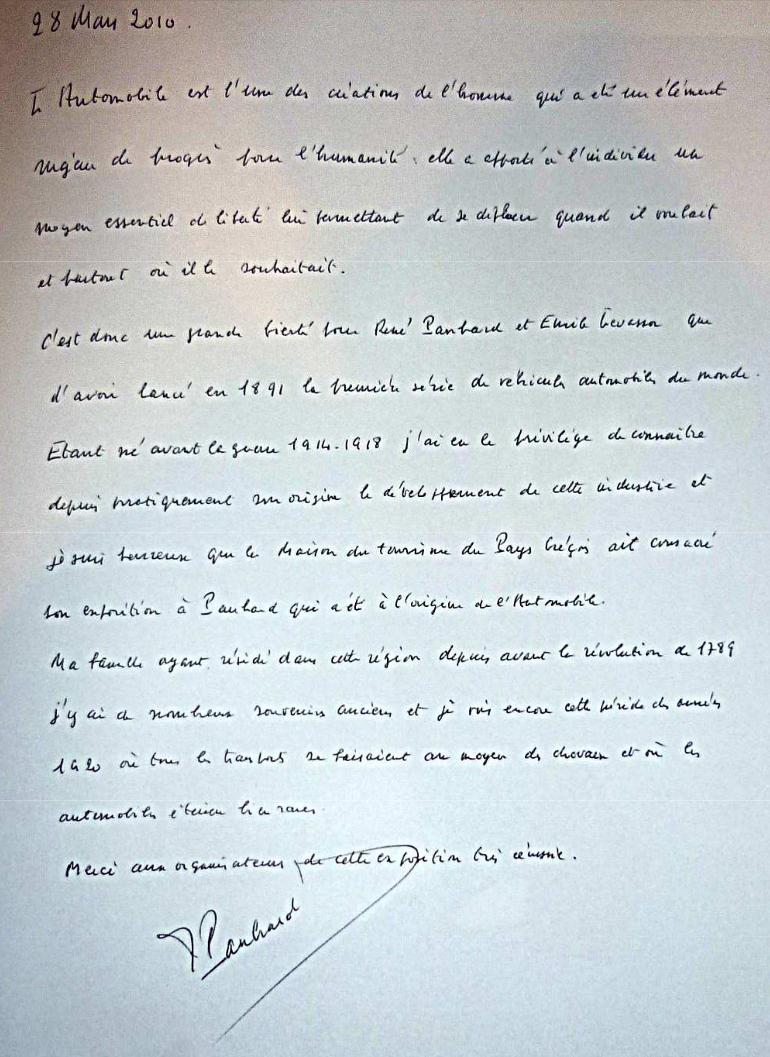 28 Mars 2010.
L'Automobile est l'une des créations de l'homme qui a été un élément
majeur de progrès pour l'humanité. elle a apporté à l'individu un
moyen essentiel de liberté lui permettant de se déplacer quand il voulait
et partout où il le souhaitait.
C'est donc une grande fierté pour René Panhard et Emile Levassor que
d'avoir lancé en 1891 la première série de véhicules automobiles du monde.
Etant né avant la guerre 1914-1918 j'ai eu le privilège de connaître
depuis pratiquement son origine le développement de cette industrie et
je suis heureux que la Maison du tourisme du Pays
ait consacré
son exposition à Panhard qui a été à l'origine de l'Automobile.
Ma famille ayant résidé dans cette région depuis avant la révolution de 1789
j'y ai de nombreux souvenirs anciens et je vois encore cette période des années
1920 où tous les transports se faisaient au moyen des chevaux et où les
automobiles étaient bien rares.
Merci aux organisateurs de cette exposition très réussie.
Panhard